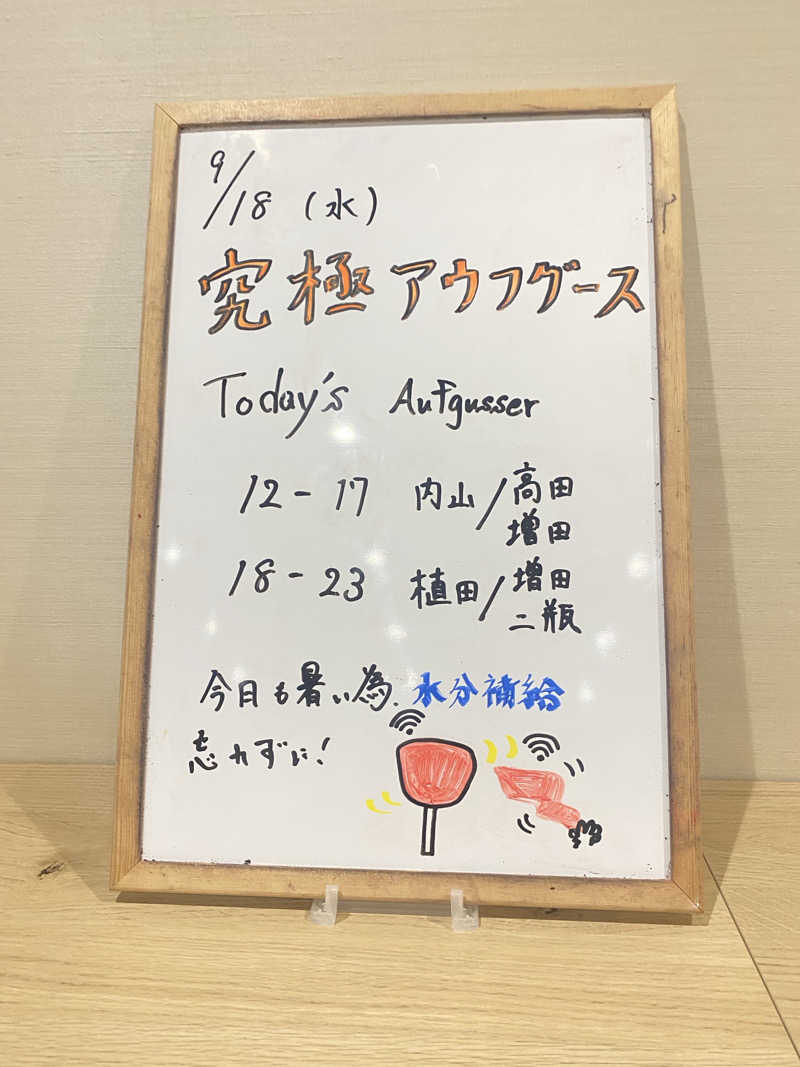 9/18 (水)
究極アウフグース
Today's Aufgusser
12-17 内山/高田
増田
18-23 植田/増田
二瓶
今日も暑い為、水分補給
忘れずに!